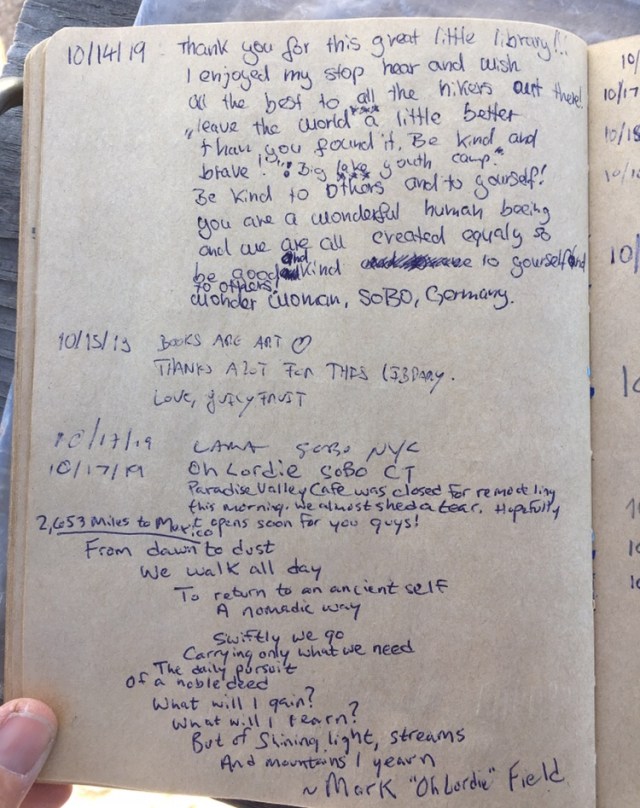 10/14/19 Thank you for this great little library!!
I enjoyed my stop hear and wish
all the best to all the hikers out there!
"leave the world a little better
than you found it. Be kind and
brave!" Big lake youth camp.
Be kind to others and to yourself!
you are a wonderful human beeing
and we are all created equaly so
be good and kind to yourself and
to others!
Wonder Woman, SOBO, Germany.
10/15/19 BOOKS ARE ART ♡
THANKS A LOT FOR THIS LIBRARY.
LOVE, JUICY FRUIT
10/17/19 LAMA SOBO NYC
10/17/19 Oh Lordie SOBO CT
Paradise Valley Cafe was closed for remodeling
this morning. We almost shed a tear. Hopefully
2,653 Miles to Mexico it opens soon for you guys!
From dawn to dust
We walk all day
To return to an ancient self
A nomadic way
Swiftly we go
Carrying only what we need
The daily pursuit
of a noble deed
What will I gain?
What will I learn?
But of Shining light, streams
And mountains I yearn
~ Mark "Oh Lordie" Field
10/
10/17
10/18
10/
10/